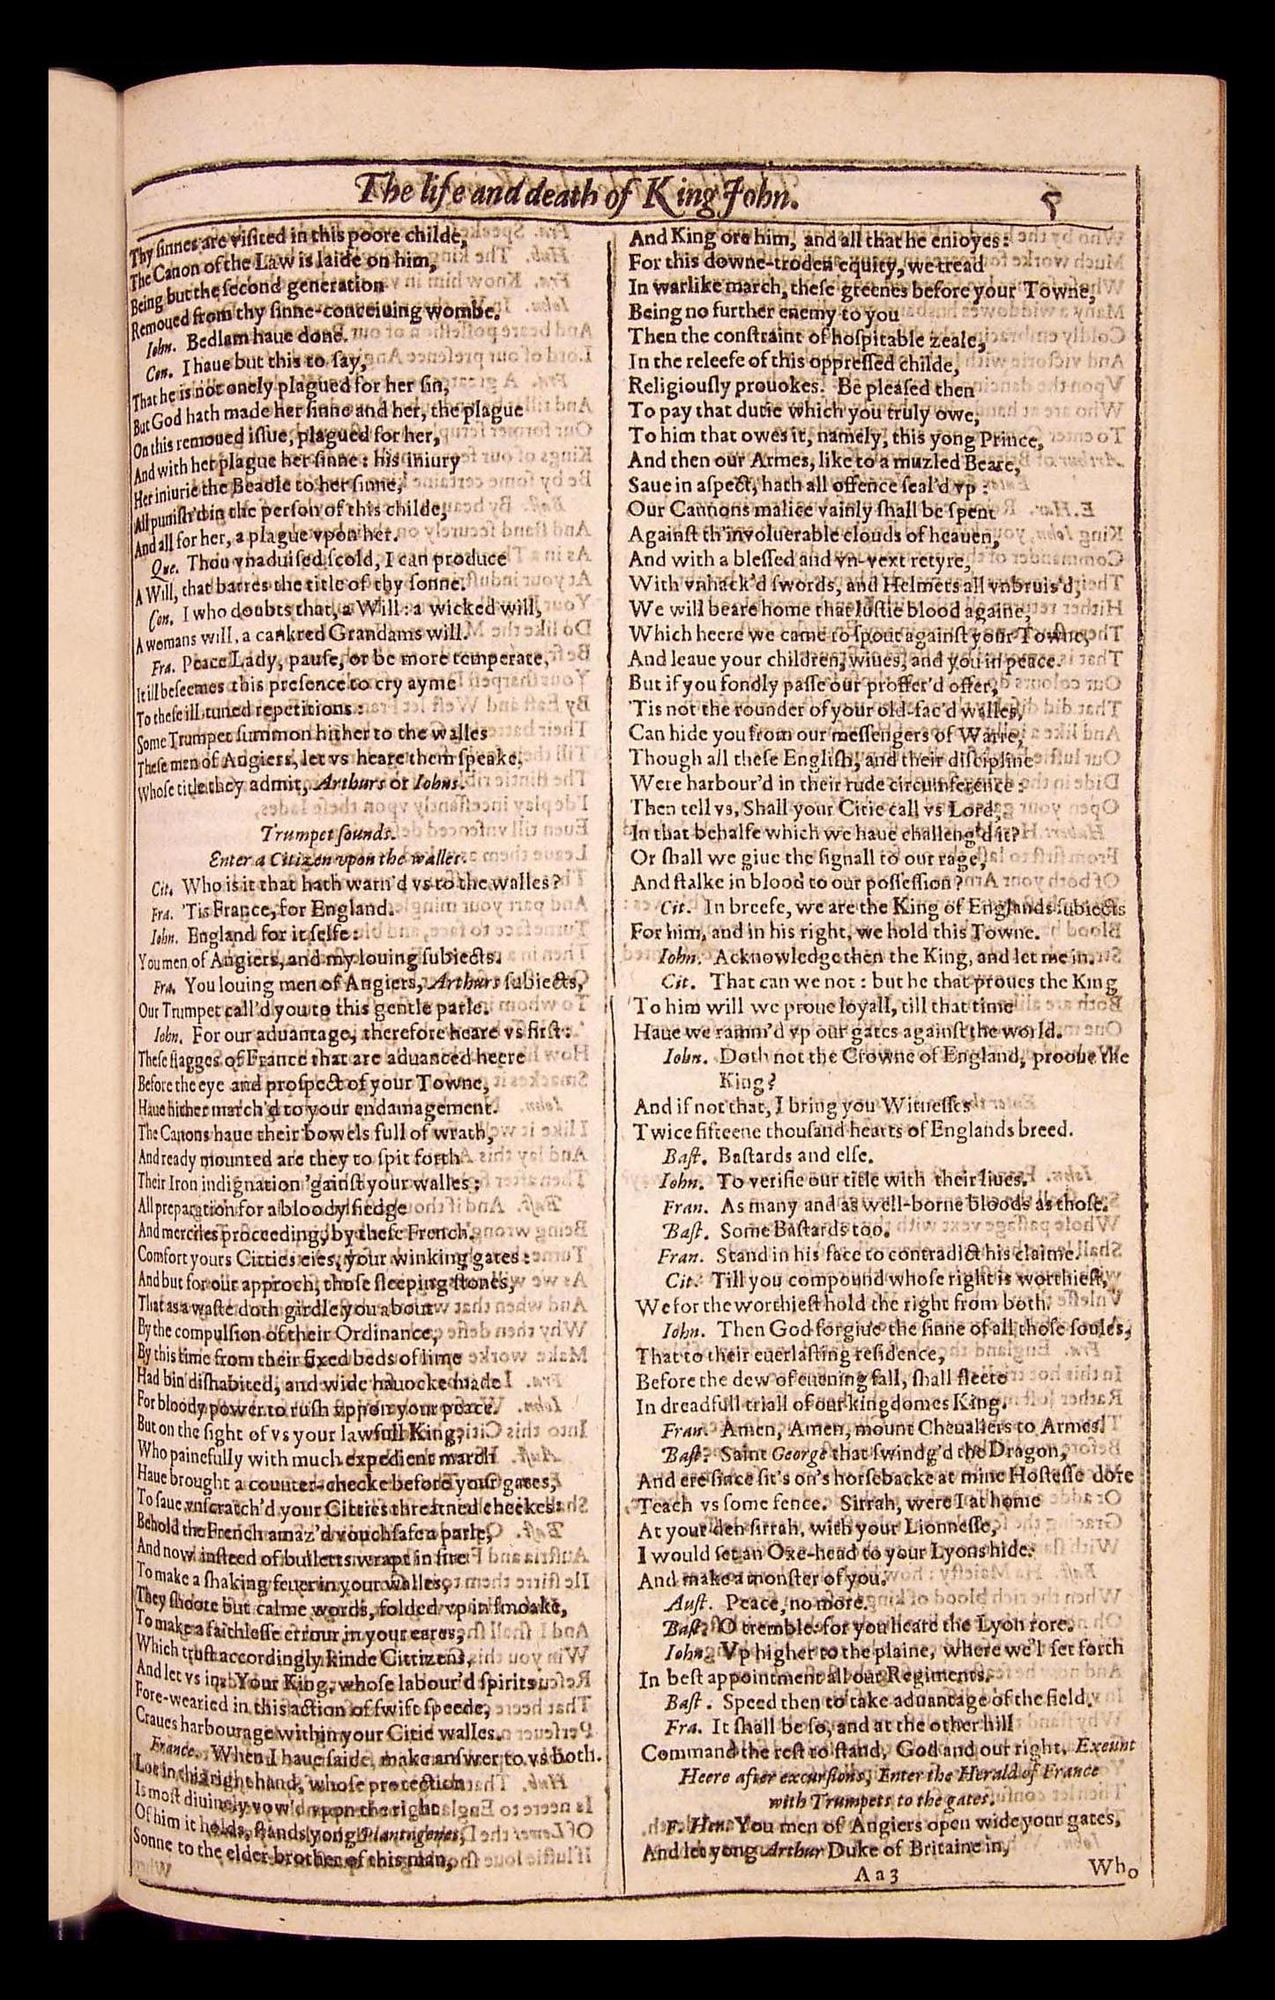 The life and death of King John. 5
Thy sinnes are visited in this poore childe,
The Canon of the Law is laide on him,
Being but the second generation
Remoued from thy sinne-conceiuing wombe.
Iohn. Bedlam haue done.
Con. I haue but this to say,
That he is not onely plagued for her sin,
But God hath made her sinne and her, the plague
On this remoued issue, plagued for her,
And with her plague her sinne: his iniury
Her iniurie the Beadle to her sinne,
All punish'd in the person of this childe,
And all for her, a plague vpon her.
Que. Thou vnaduised scold, I can produce
A Will, that barres the title of thy sonne.
Con. I who doubts that, a Will: a wicked will,
A womans will, a cankred Grandams will.
Fra. Peace Lady, pause, or be more temperate,
It ill beseemes this presence to cry ayme
To these ill-tuned repetitions:
Some Trumpet summon hither to the walles
These men of Angiers, let vs heare them speake,
Whose title they admit, Arthurs or Iohns.
Trumpet sounds.
Enter a Citizen vpon the walles.
Cit. Who is it that hath warn'd vs to the walles?
Fra. 'Tis France, for England.
Iohn. England for it selfe:
You men of Angiers, and my louing subiects.
Fra. You louing men of Angiers, Arthurs subiects,
Our Trumpet call'd you to this gentle parle.
Iohn. For our aduantage, therefore heare vs first:
These flagges of France that are aduanced heere
Before the eye and prospect of your Towne,
Haue hither march'd to your endamagement.
The Canons haue their bowels full of wrath,
And ready mounted are they to spit forth
Their Iron indignation 'gainst your walles:
All preparation for a bloody siedge
And merciles proceeding, by these French.
Comfort yours Citties eies, your winking gates:
And but for our approch, those sleeping stones,
That as a waste doth girdle you about
By the compulsion of their Ordinance,
By this time from their fixed beds of lime
Had bin dishabited, and wide hauocke made
For bloody power to rush vppon your peace.
But on the sight of vs your lawfull King,
Who painefully with much expedient march
Haue brought a counter-checke before your gates,
To saue vnscratch'd your Citties threatned cheekes:
Behold the French amaz'd vouchsafe a parle,
And now insteed of bulletts wrapt in fire
To make a shaking feuer in your walles,
They shoote but calme words, folded vp in smoake,
To make a faithlesse errour in your eares,
Which trust accordingly kinde Cittizens,
And let vs in. Your King, whose labour'd spirits
Fore-wearied in this action of swift speede,
Craues harbourage within your Citie walles.
France. When I haue saide, make answer to vs both.
Loe in this right hand, whose protection
Is most diuinely vow'd vpon the right
Of him it holds, stands yong Plantagenet,
Sonne to the elder brother of this man,
And King ore him, and all that he enioyes:
For this downe-troden equity, we tread
In warlike march, these greenes before your Towne,
Being no further enemy to you
Then the constraint of hospitable zeale,
In the releefe of this oppressed childe,
Religiously prouokes. Be pleased then
To pay that dutie which you truly owe,
To him that owes it, namely, this yong Prince,
And then our Armes, like to a muzled Beare,
Saue in aspect, hath all offence seal'd vp:
Our Cannons malice vainly shall be spent
Against th'involuerable clouds of heauen,
And with a blessed and vn-vext retyre,
With vnhack'd swords, and Helmets all vnbruis'd,
We will beare home that lustie blood againe,
Which heere we came to spout against your Towne,
And leaue your children, wiues, and you in peace.
But if you fondly passe our proffer'd offer,
'Tis not the rounder of your old-fac'd walles,
Can hide you from our messengers of Warre,
Though all these English, and their discipline
Were harbour'd in their rude circumference:
Then tell vs, Shall your Citie call vs Lord,
In that behalfe which we haue challeng'd it?
Or shall we giue the signall to our rage,
And stalke in blood to our possession?
Cit. In breefe, we are the King of Englands subiects
For him, and in his right, we hold this Towne.
Iohn. Acknowledge then the King, and let me in.
Cit. That can we not: but he that proues the King
To him will we proue loyall, till that time
Haue we ramm'd vp our gates against the world.
Iohn. Doth not the Crowne of England, prooue the
King?
And if not that, I bring you Witnesses
Twice fifteene thousand hearts of Englands breed.
Bast. Bastards and else.
Iohn. To verifie our title with their liues.
Fran. As many and as well-borne bloods as those.
Bast. Some Bastards too.
Fran. Stand in his face to contradict his claime.
Cit. Till you compound whose right is worthiest,
We for the worthiest hold the right from both.
Iohn. Then God forgiue the sinne of all those soules,
That to their euerlasting residence,
Before the dew of euening fall, shall fleete
In dreadfull triall of our kingdomes King.
Fran. Amen, Amen, mount Cheualiers to Armes.
Bast. Saint George that swindg'd the Dragon,
And ere since sit's on's horsebacke at mine Hostesse dore
Teach vs some fence. Sirrah, were I at home
At your den sirrah, with your Lionnesse,
I would set an Oxe-head to your Lyons hide:
And make a monster of you.
Aust. Peace, no more.
Bast. O tremble: for you heare the Lyon rore.
Iohn. Vp higher to the plaine, where we'l set forth
In best appointment all our Regiments.
Bast. Speed then to take aduantage of the field.
Fra. It shall be so, and at the other hill
Command the rest to stand, God and our right. Exeunt
Heere after excursions, Enter the Herald of France
with Trumpets to the gates.
F. Her. You men of Angiers open wide your gates,
And let yong Arthur Duke of Britaine in,
Aa3 Who